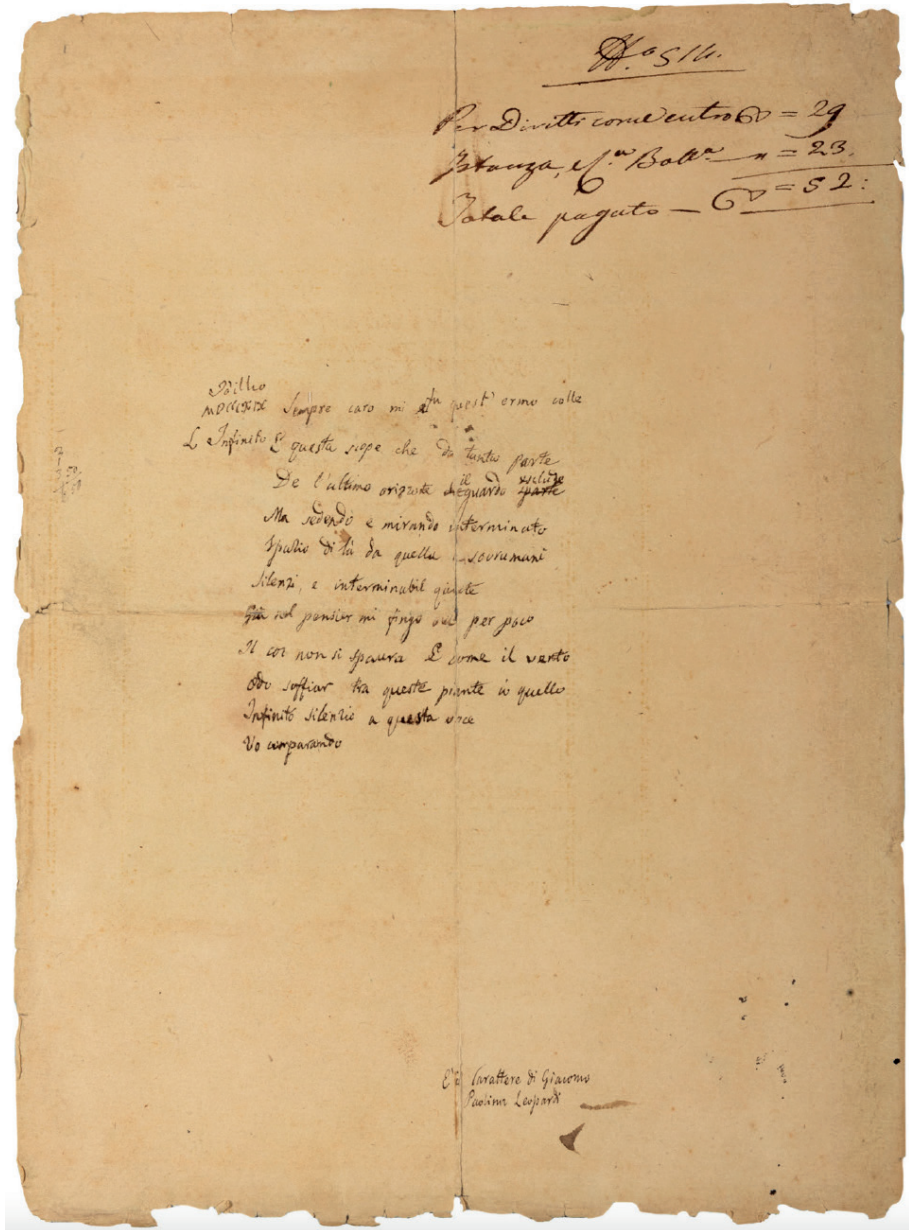 N.o 514.
Per Diritti come entro = 29
Istanza, e = 23.
Totale pagato — = 52:
Idillio
MDCCCXIX Sempre caro mi fu quest' ermo colle
L Infinito E questa siepe che da tanta parte
De l'ultimo orizonte il guardo esclude
Ma sedendo e mirando interminato
Spazio di là da quella e sovrumani
Silenzi, e interminabil quiete
nel pensier mi fingo ove per poco
Il cor non si spaura E come il vento
Odo soffiar tra queste piante io quello
Infinito silenzio a questa voce
Vo comparando
E' Carattere di Giacomo
Paolina Leopardi